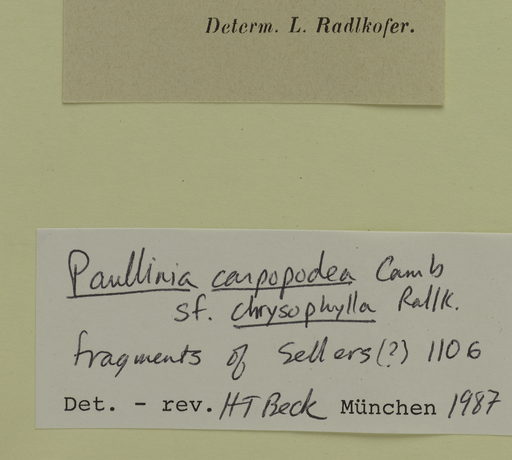 Determ. L. Radlkofer.
Paullinia carpopodea Camb
sf. chrysophylla Radlk.
fragments of Sellers(?) 1106
Det. - rev. HT Beck München 1987